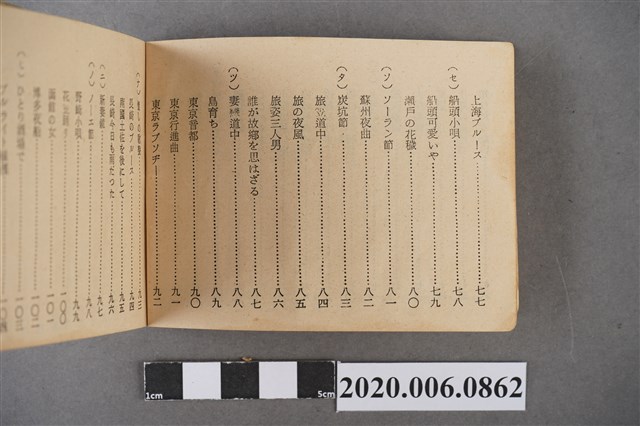 上海ブルース……七七
(セ) 船頭小唄……七八
船頭可愛いや……七九
瀬戸の花嫁……八〇
(ソ) ソーラン節……八一
蘇州夜曲……八二
(タ) 炭坑節……八三
旅笠道中……八四
旅の夜風……八五
旅姿三人男……八六
誰が故郷を思はざる……八七
(ツ) 妻恋道中……八八
島育ち……八九
東京音頭……九〇
東京行進曲……九一
東京ラプソヂー……九二
九三
長崎のブルース……九四
南国土佐を後にして……九五
長崎は今日も雨だつた……九六
(ニ) 新妻鏡……九七
(ノ) ノーエ節……九八
野崎小唄……九九
一〇〇
函館の女……一〇一
博多夜船……一〇二
ひとり酒場で
1cm
5cm
2020.006.0862